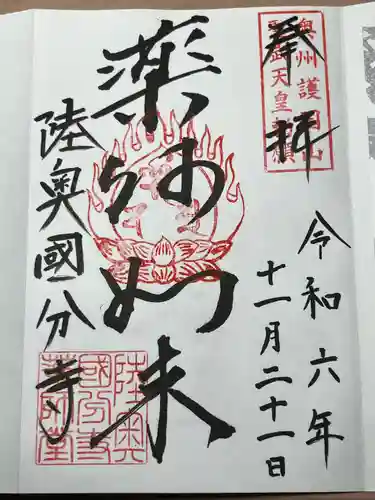 奉拝
奥州護国山
聖武天皇勅願
令和六年
十一月二十一日
薬師如来
陸奥國分寺
陸奥
國分寺
薬師堂